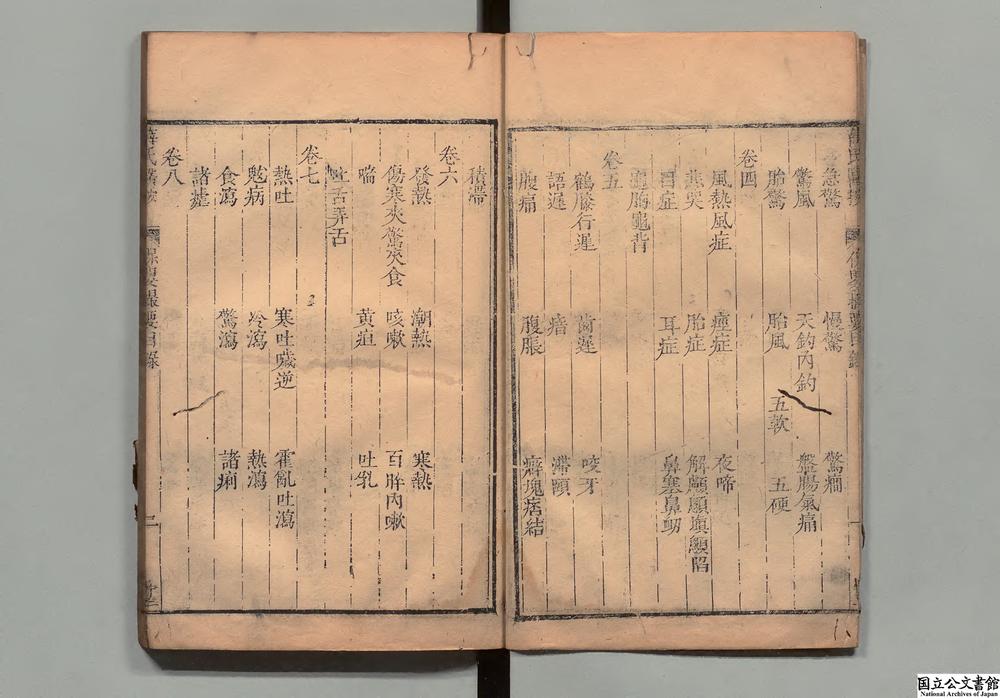 急驚 慢驚 驚癇
驚風 天釣內釣 盤腸氣痛
胎驚 胎風 五軟 五硬
卷四
風熱風症 痙症 夜啼
悲哭 胎症 解顱顖填顖陷
目症 耳症 鼻塞鼻衂
龜胸龜背
卷五
鶴膝行遲 齒遲 咬牙
語遲 瘖 滯頤
腹痛 腹脹 癖塊痞結
積滯
卷六
發熱 潮熱 寒熱
傷寒夾驚夾食 咳嗽 百晬內嗽
喘 黃疸 吐乳
吐舌弄舌
卷七
熱吐 寒吐噦逆 霍亂吐瀉
魃病 冷瀉 熱瀉
食瀉 驚瀉 諸痢
諸瘧
卷八
薛氏醫按 保嬰撮要目錄 二
国立公文書館
National Archives of Japan